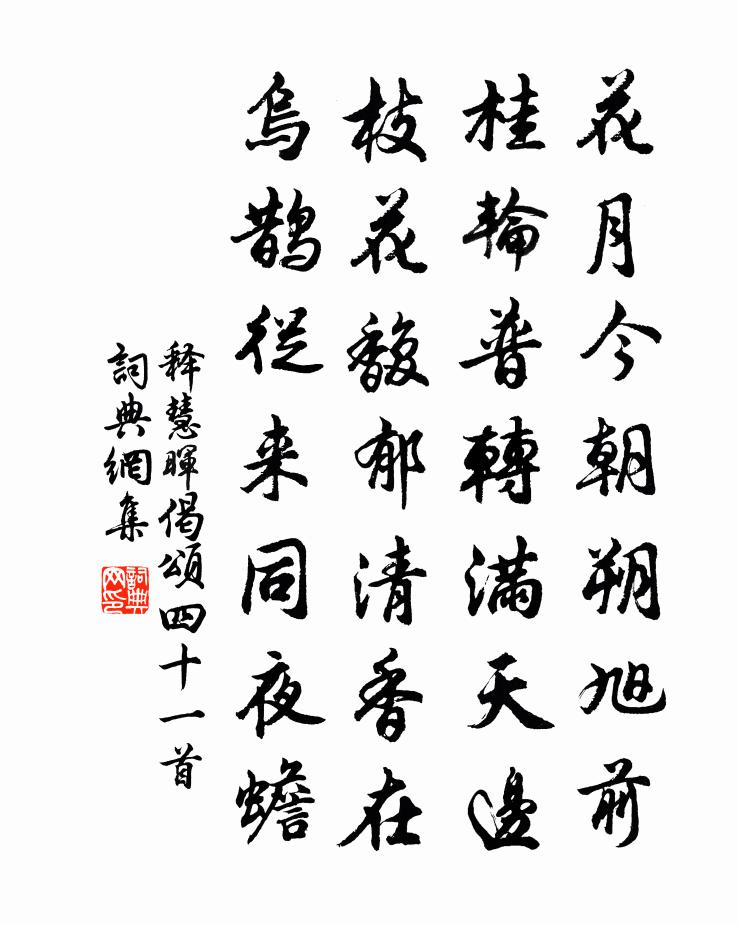 花月今朝朔旭前
桂輪普轉滿天邊
枝花馥郁清香在
烏鵲從来同夜蟾
释慧暉偈頌四十一首
詞典網集
詞典網印